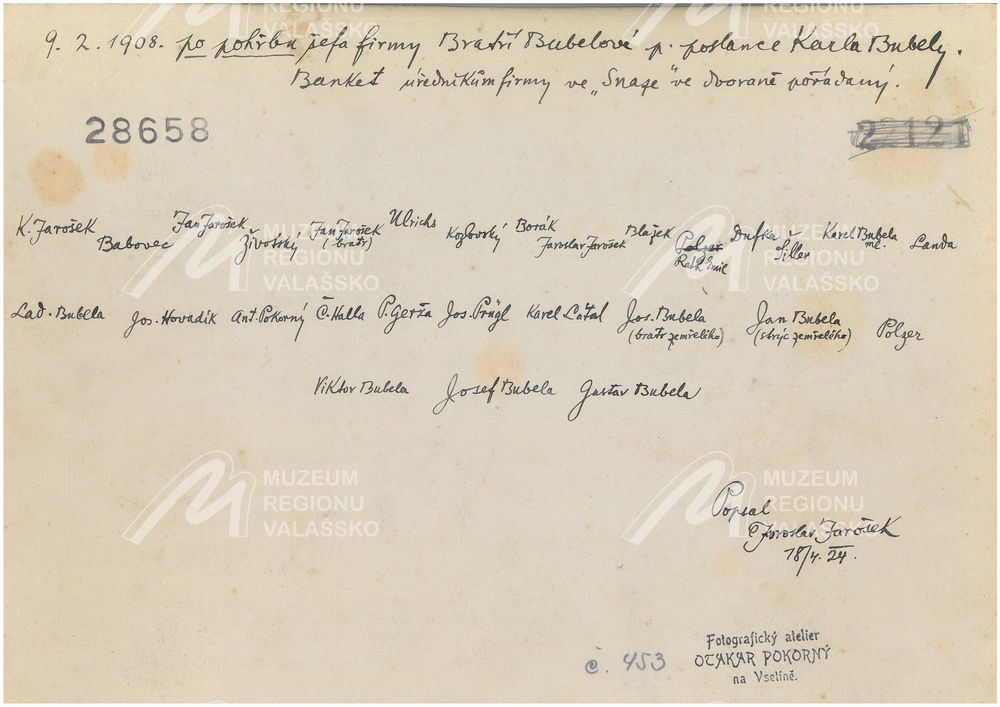 9. 2. 1908. po pohřbu šefa firmy Bratří Bubelové p. poslance Karla Bubely.
Banket úředníkům firmy ve „Snaze" ve dvoraně pořádaný.
28658
22121
K. Jarošek Babovec Jan Jarošek Životský Jan Jarošek (bratr) Ulrichs Kozlovský Borák Jaroslav Jarošek Blažek Polzer Rath Emil Dufka Šiller Karel Bubela ml. Landa
Lad. Bubela Jos. Hovadík Ant. Pokorný Č. Halla P. Gerža Jos. Prügl Karel Látal Jos. Bubela (bratr zemřelého) Jan Bubela (strýc zemřelého) Polzer
Viktor Bubela Josef Bubela Gustav Bubela
Popsal
Jaroslav Jarošek
18/4. 24.
č. 453
Fotografický atelier
OTAKAR POKORNÝ
na Vsetíně.
MUZEUM
REGIONU
VALAŠSKO
MUZEUM
REGIONU
VALAŠSKO
MUZEUM
REGIONU
VALAŠSKO
MUZEUM
REGIONU
VALAŠSKO
MUZEUM
REGIONU
VALAŠSKO
MUZEUM
REGIONU
VALAŠSKO